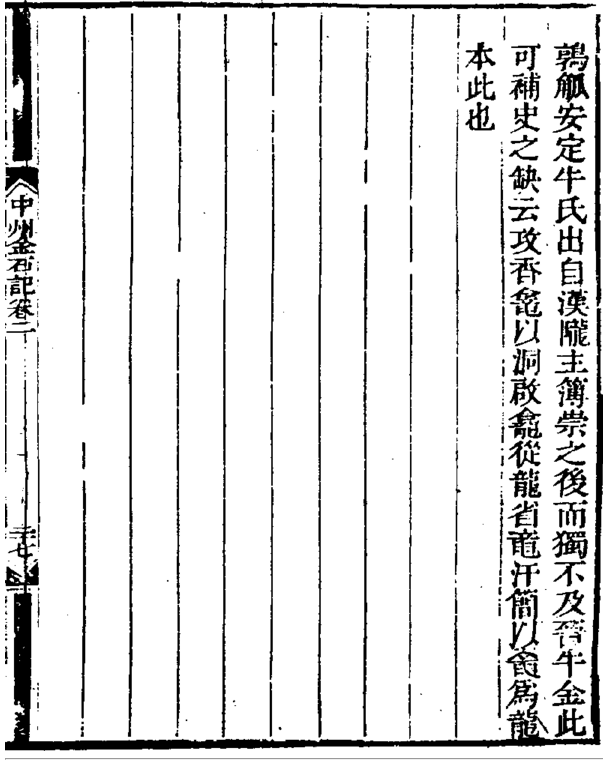 鶉觚安定牛氏出自漢隴主簿崇之後而獨不及晉牛金此
可補史之缺云攻香龕以洞啟龕從龍省竜汗簡以龕爲龍
本此也
中州金石記卷二
二十七